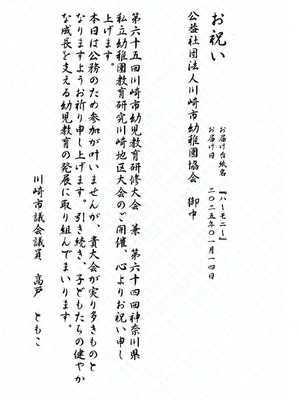 お祝い
お届け台紙名 『ハーモニー』
お届け日 二〇二五年〇一月一四日
公益社団法人川崎市幼稚園協会 御中
第六十五回川崎市幼児教育研修大会 兼 第六十四回神奈川県
私立幼稚園教育研究川崎地区大会のご開催、心よりお祝い申し
上げます。
本日は公務のため参加が叶いませんが、貴大会が実り多きものと
なりますようお祈り申し上げます。引き続き、子どもたちの健やか
な成長を支える幼児教育の発展に取り組んでまいります。
川崎市議会議員 高戸 ともこ